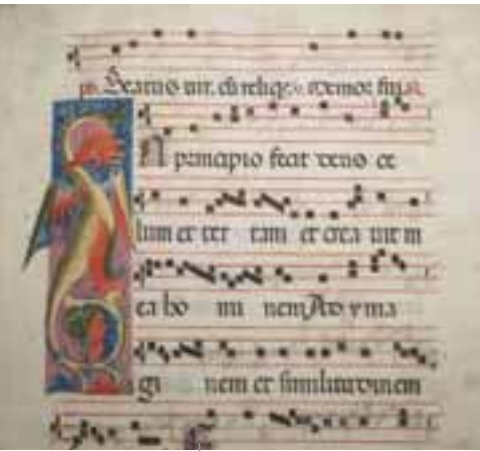 ps. Beatus uir. cū
N principio fecit deus ce
lum et ter ram et crea uit in
ea ho mi nem Ad yma
gi nem et similitudinem